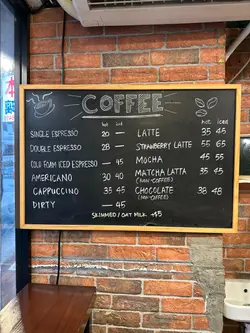 COFFEE
hot iced
SINGLE ESPRESSO 20 —
DOUBLE ESPRESSO 28 —
COLD FOAM ICED ESPRESSO — 45
AMERICANO 30 40
CAPPUCCINO 35 45
DIRTY — 45
HOT ICED
LATTE 35 45
STRAWBERRY LATTE 55 65
MOCHA 45 55
MATCHA LATTA 35 45
(NON-COFFEE)
CHOCOLATE 38 48
(NO-COFFEE)
SKIMMED / OAT MILK +5
本